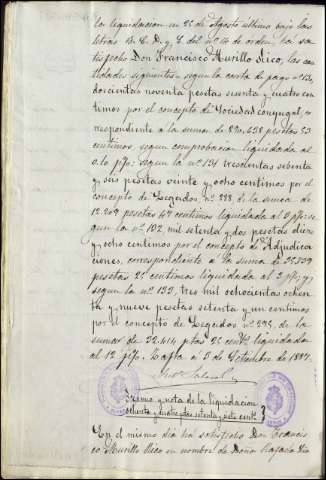 la liquidacion en 26 de Agosto ultimo bajo las
letras B. C. D. y E. del nº 14 de orden, ha sa-
tisfecho Don Francisco Murillo Rico, las can-
tidades siguientes = segun la carta de pago nº
doscientas noventa pesetas sesenta y cuatro cen-
timos por el concepto de Sociedad conyugal, co-
rrespondiente á la suma de 290.638 pesetas 53
centimos segun comprobacion liquidada al
0.10 p%: segun la nº 131 trescientas sesenta
y seis pesetas veinte y ocho centimos por el
concepto de Legados nº 228 de la suma de
12.209 pesetas 47 centimos liquidada al 3 p%: se-
gun la nº 132, mil setenta y dos pesetas diez
y ocho centimos por el concepto de Adjudica-
ciones, correspondiente á la suma de
pesetas 25 centimos liquidada al p%; y
segun la nº 133, tres mil ochocientas ochen-
ta y nueve pesetas setenta y un centimos
por el concepto de Legados nº 235, de la
suma de 32.414 ptas 25 centº liquidada
al 12 p%. Zafra á 3 de Setiembre de 1887.
Examen y nota de la liquidacion
ochenta y cuatro ptas setenta y siete centº
En el mismo dia ha satisfecho Don Francis-
co Murillo Rico en nombre de Doña